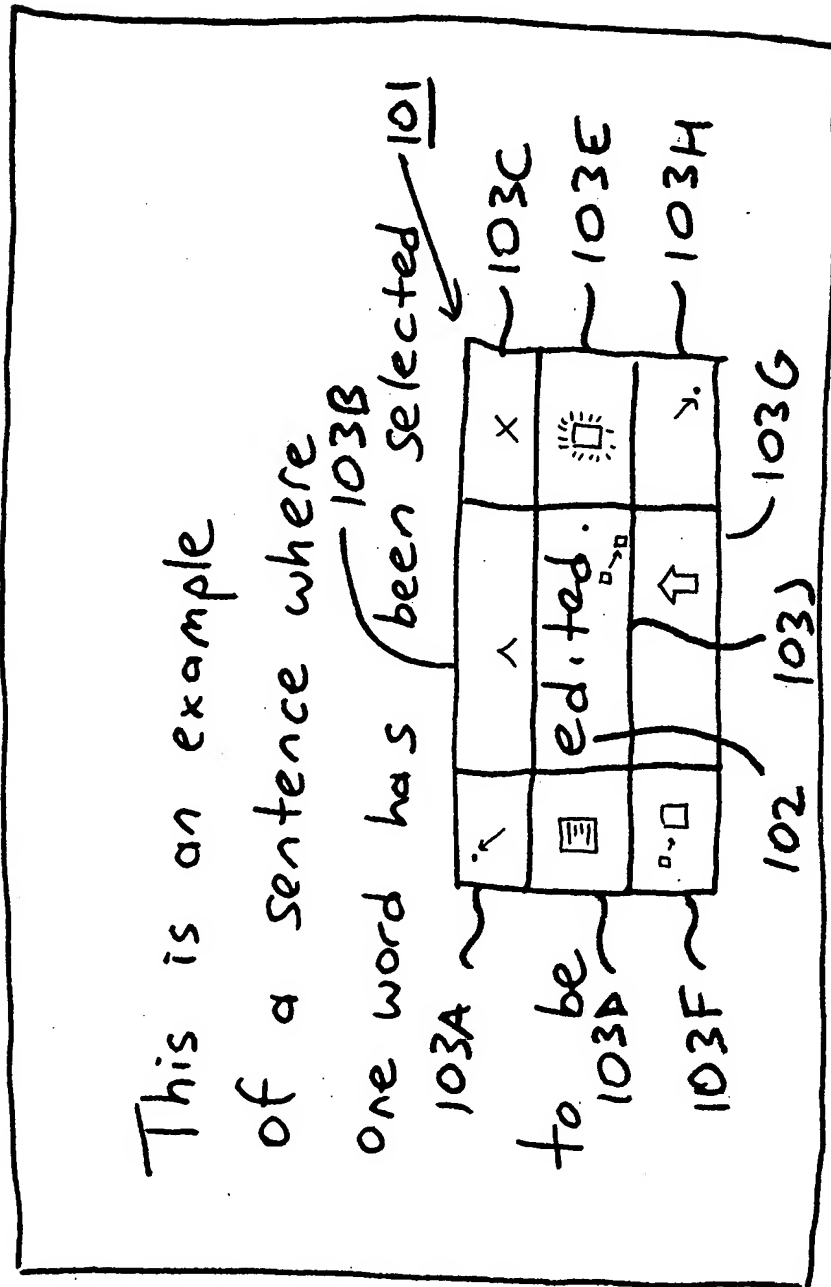 This is an example
of a sentence where
103B
one word has been selected 101
103A
103C
to be edited.
103D
103E
103F
103H
102
103J
103G